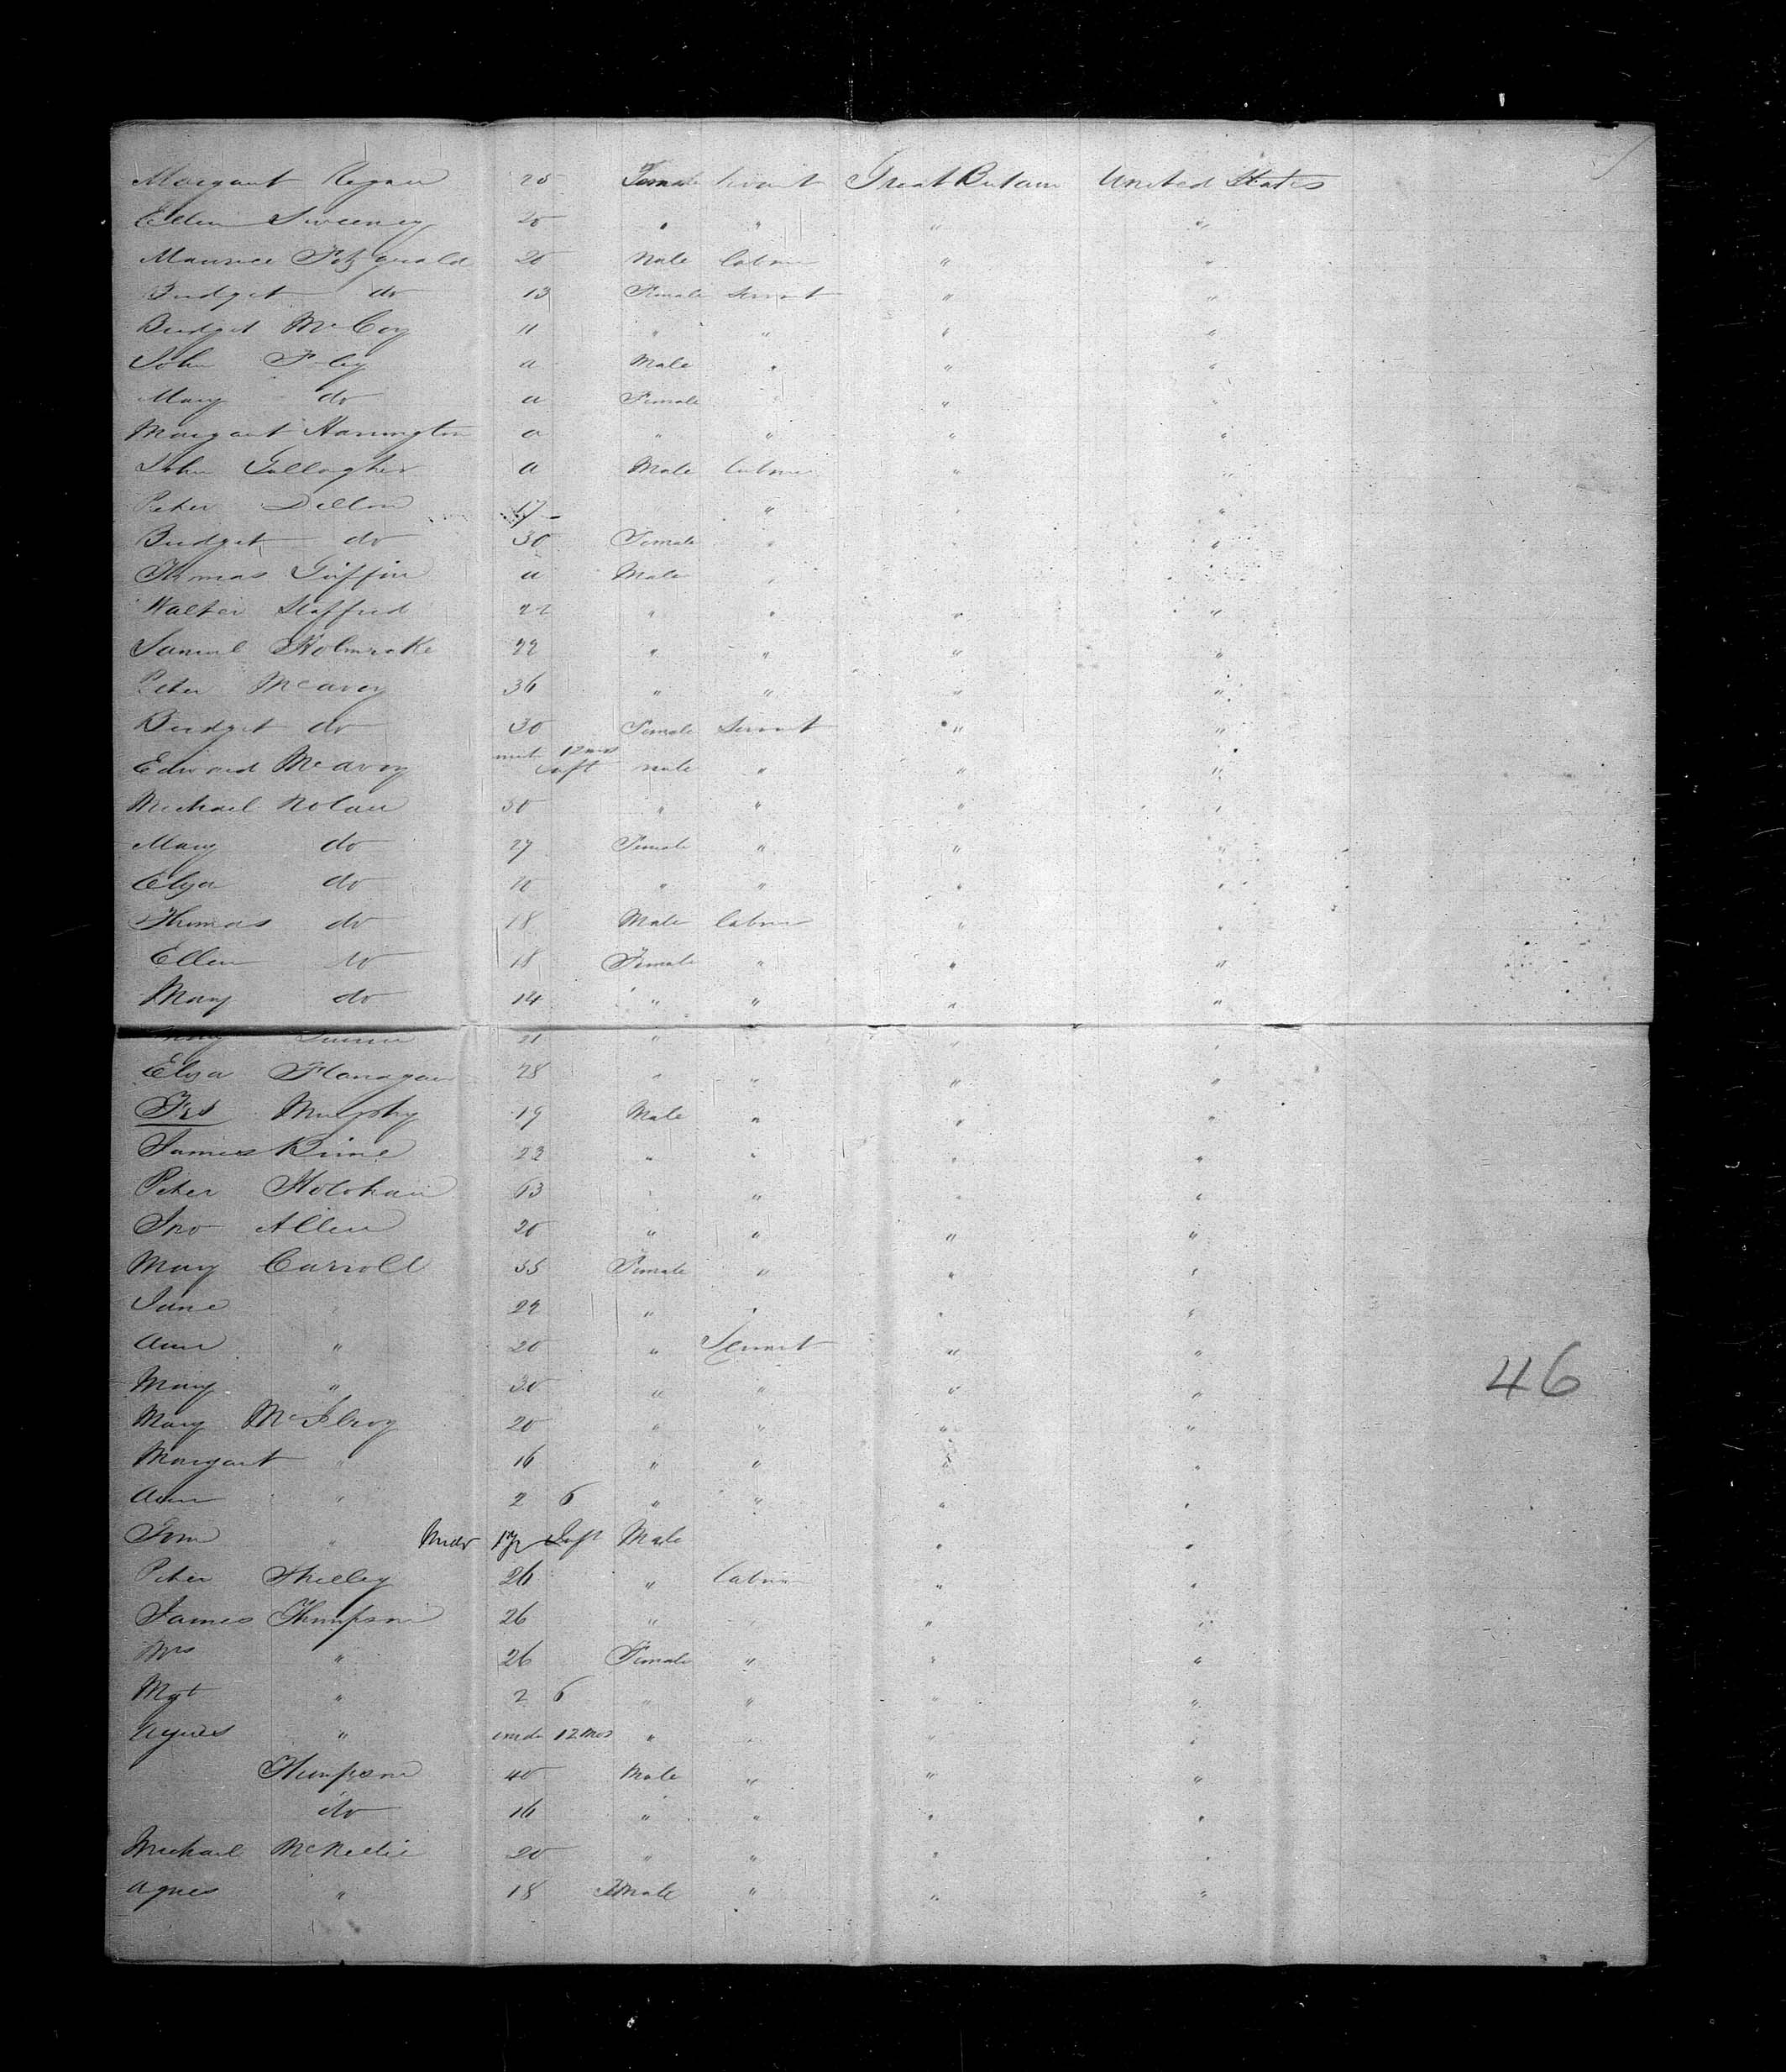 Margaret Regan 25 Female Servant Great Britain United States
Ellen Sweeney 20 " " " "
Maurice Fitzgerald 20 Male labour " "
Bridget do 13 Female Servant " "
Bridget McCoy 11 " " " "
John a Male " " "
Mary do a Female " " "
Margaret Harrington a " " " "
John Gallagher a Male labour " "
Peter Dillon 17 " " "
Bridget do 30 Female " " "
Thomas Griffin a Male " " "
Walter Stafford 22 " " " "
Samuel 22 " " " "
Peter McAvoy 36 " " " "
Bridget do 30 Female Servant " "
Edward McAvoy 12 mos Inft male " " "
Michael Nolan 30 " " " "
Mary do 27 Female " " "
Eliza do 10 " " " "
Thomas do 18 Male labour " "
Ellen do 18 Female " " "
Mary do 14 " " " "
21 " " "
Eliza Flanagan 28 " " " "
Frs Murphy 19 Male " " "
James 23 " " " "
Peter Holohan 63 " " " "
Jno Allen 20 " " " "
Mary Carroll 35 Female " " "
Jane " 22 " " " "
Ann " 20 " Servant " "
Mary " 30 " " " "
46
Mary McIlroy 20 " " " "
Margaret " 16 " " " "
Ann " 2 6 " " " "
" under 1 yr Inft Male " "
Peter Shelley 26 " labour " "
James Thompson 26 " " " "
Mrs " 26 Female " " "
Mgt " 2 6 " " " "
Agnes " under 12 mos " " " "
Thompson 40 Male " " "
do 16 " " " "
Michael 20 " " " "
Agnes " 18 Female " " "